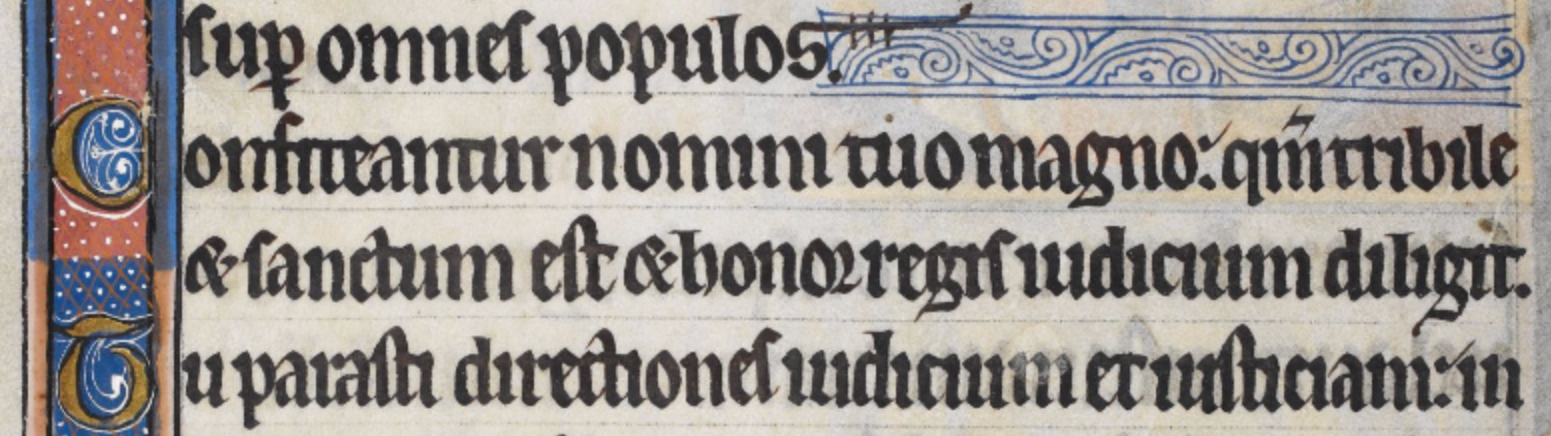 sup̱ omnes populos.
Confiteantur nomini tuo magno: qm̅ tribile
& sanctum est & honor regis iudicium diligit.
Tu parasti directiones iudicium et iusticiam: in